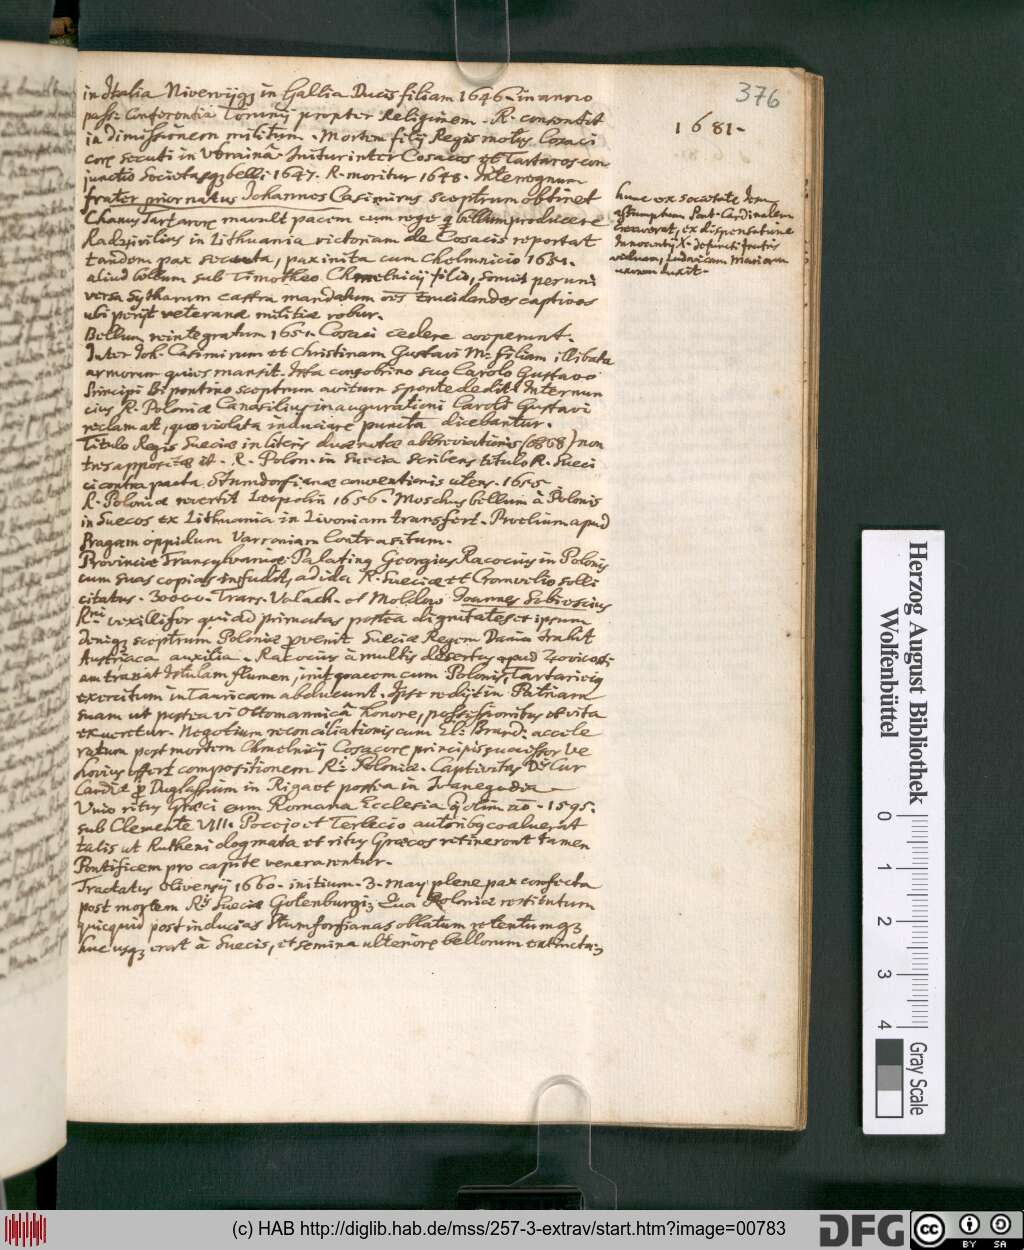 376
1681.
in Italia Nivervijqz in Gallia Ducis filiam 1646. in anno
pass: Conferentia Torunij propter Religinem. R. consentit
in dimissionem militum. Mortem filij Regis motus Cosaci
corz secuti in Vkrainâ. Initur inter Cosacos et Tartaros con
junctio Societasqz belli 1647. R. moritur 1648. Interregnum
frater prior natus Johannes Casimirus sceptrum obtinet
Chanus Tartarorz mavult pacem cum rege q bellum producere
Radzivilius in Lithuania victoriam de Cosacis reportat
tandem pax secuta, pax inita cum Chelmnicio 1651.
aliud bellum sub Timotheo Chmelnicij filio, somus per uni
versa Sytharum castra mandatum oēs trucidandos captivos
ubi perijt veteranæ militiæ robur.
Bellum reintegratum 1651. Cosaci cedere cooperunt.
Inter Joh. Casimirum et Christinam Gustavi M: filiam illibata
armorum quies mansit. Ista consobrino suo Carolo Gustavo
Principi Bipontino sceptrum avitum sponte dedit Internun
cius R. Poloniæ Canasilius inaugurationi Caroli Gustavi
reclamat, quo violata induciarz puncta dicebantur.
Titulo Regis Sueciæ in literis duæ notæ abbreviationis (&c&c) non
tres appositæ st. R. Polon. in Suecia scribens titulo R. Sueci
ci contra pacta Stumdorfianæ conventionis utens. 1655
R. Poloniæ revertit Leopolin 1656. Moschus bellum à Polonis
in Suecos ex Lithuania in Livoniam transfert. Proelium apud
Pragam oppidum Varsoniam contrasitum.
Provinciæ Transylvaniæ Palating Georgius Racocius in Polonis
cum suas copias infudit, ad id a R. Sueciæ et Cromvelio solli
citatus. 30000. Trans. Valach. et Moldov Joannes Sobiescius
Rni vexillifer qui ad primatas postea dignitates et ipsum
deniqz sceptrum Poloniæ pvenit Sueciæ Regem Dania trahit
Austriaca auxilia. Racocius à multis desertus apud
am transiit Istulam flumen, init pacem cum Polonis, Tartari eiq
exercitum in Tauricam abducunt. Ipse redijt in Patriam
suam ut postea vi Ottomannicâ honore, possessionibus et vita
exueretur. Negotium reconciliationis cum El: Brand: accele
ratum post mortem Chmelnicij Cosacorz principis successor Ve
hovius offert compositionem Ri Poloniæ. Captivitas Ds Cur
landiæ p Duglassium in Riga et postea in Ivanegodia
Unio ritus Græci cum Romana Ecclesia q olim aō. 1595.
sub Clemente VIII. Pocejo et Terlecio autoribq coaluerat
talis ut Rutheni dogmata et ritus Græcos retinerent tamen
Pontificem pro capite venerarentur.
Tractatus Olivensij 1660. initium. 3. May plene pax confecta
post mortem Rs Sueciæ Gotenburgi; Qua Poloniæ restitutum
quicquid post inducias Stumforfianas oblatum retentumqz
huc usqz erat à Suecis, et semina ulteriorz bellorum extincta;
hunc ex societate Jesu
assumptum Pont. Cardinalem
creaverat, ex dispensatione
Innocentij X. defuncti fratris
viduam, Ludovicam Mariam
uxorem duxit.
Herzog August Bibliothek
Wolfenbüttel
0 1 2 3 4
Gray Scale
(c) HAB http://diglib.hab.de/mss/257-3-extrav/start.htm?image=00783
DFG
cc BY SA